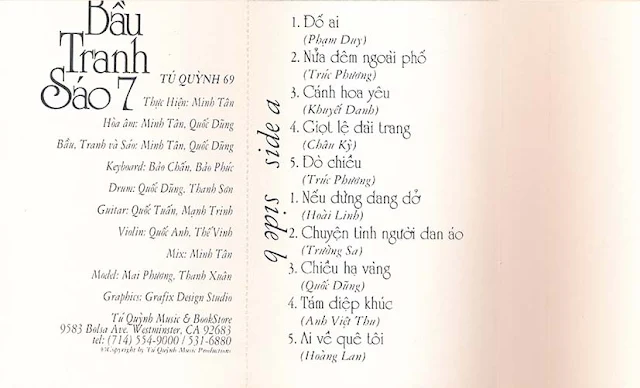 Bầu
Tranh
Sáo 7
TÚ QUỲNH 69
Thực Hiện: Minh Tân
Hòa âm: Minh Tân, Quốc Dũng
Bầu, Tranh và Sáo: Minh Tân, Quốc Dũng
Keyboard: Bảo Chấn, Bảo Phúc
Drum: Quốc Dũng, Thanh Sơn
Guitar: Quốc Tuấn, Mạnh Trinh
Violin: Quốc Anh, Thế Vinh
Mix: Minh Tân
Model: Mai Phương, Thanh Xuân
Graphics: Grafix Design Studio
Tú Quỳnh Music & BookStore
9583 Bolsa Ave. Westminster, CA 92683
tel: (714) 554-9000 / 531-6880
©Copyright by Tú Quỳnh Music Productions
side a
1. Đố ai
(Phạm Duy)
2. Nửa đêm ngoài phố
(Trúc Phương)
3. Cánh hoa yêu
(Khuyết Danh)
4. Giọt lệ đài trang
(Châu Kỳ)
5. Đò chiều
(Trúc Phương)
side b
1. Nếu đừng dang dở
(Hoài Linh)
2. Chuyện tình người đan áo
(Trường Sa)
3. Chiều hạ vàng
(Quốc Dũng)
4. Tám điệp khúc
(Anh Việt Thu)
5. Ai về quê tôi
(Hoàng Lan)